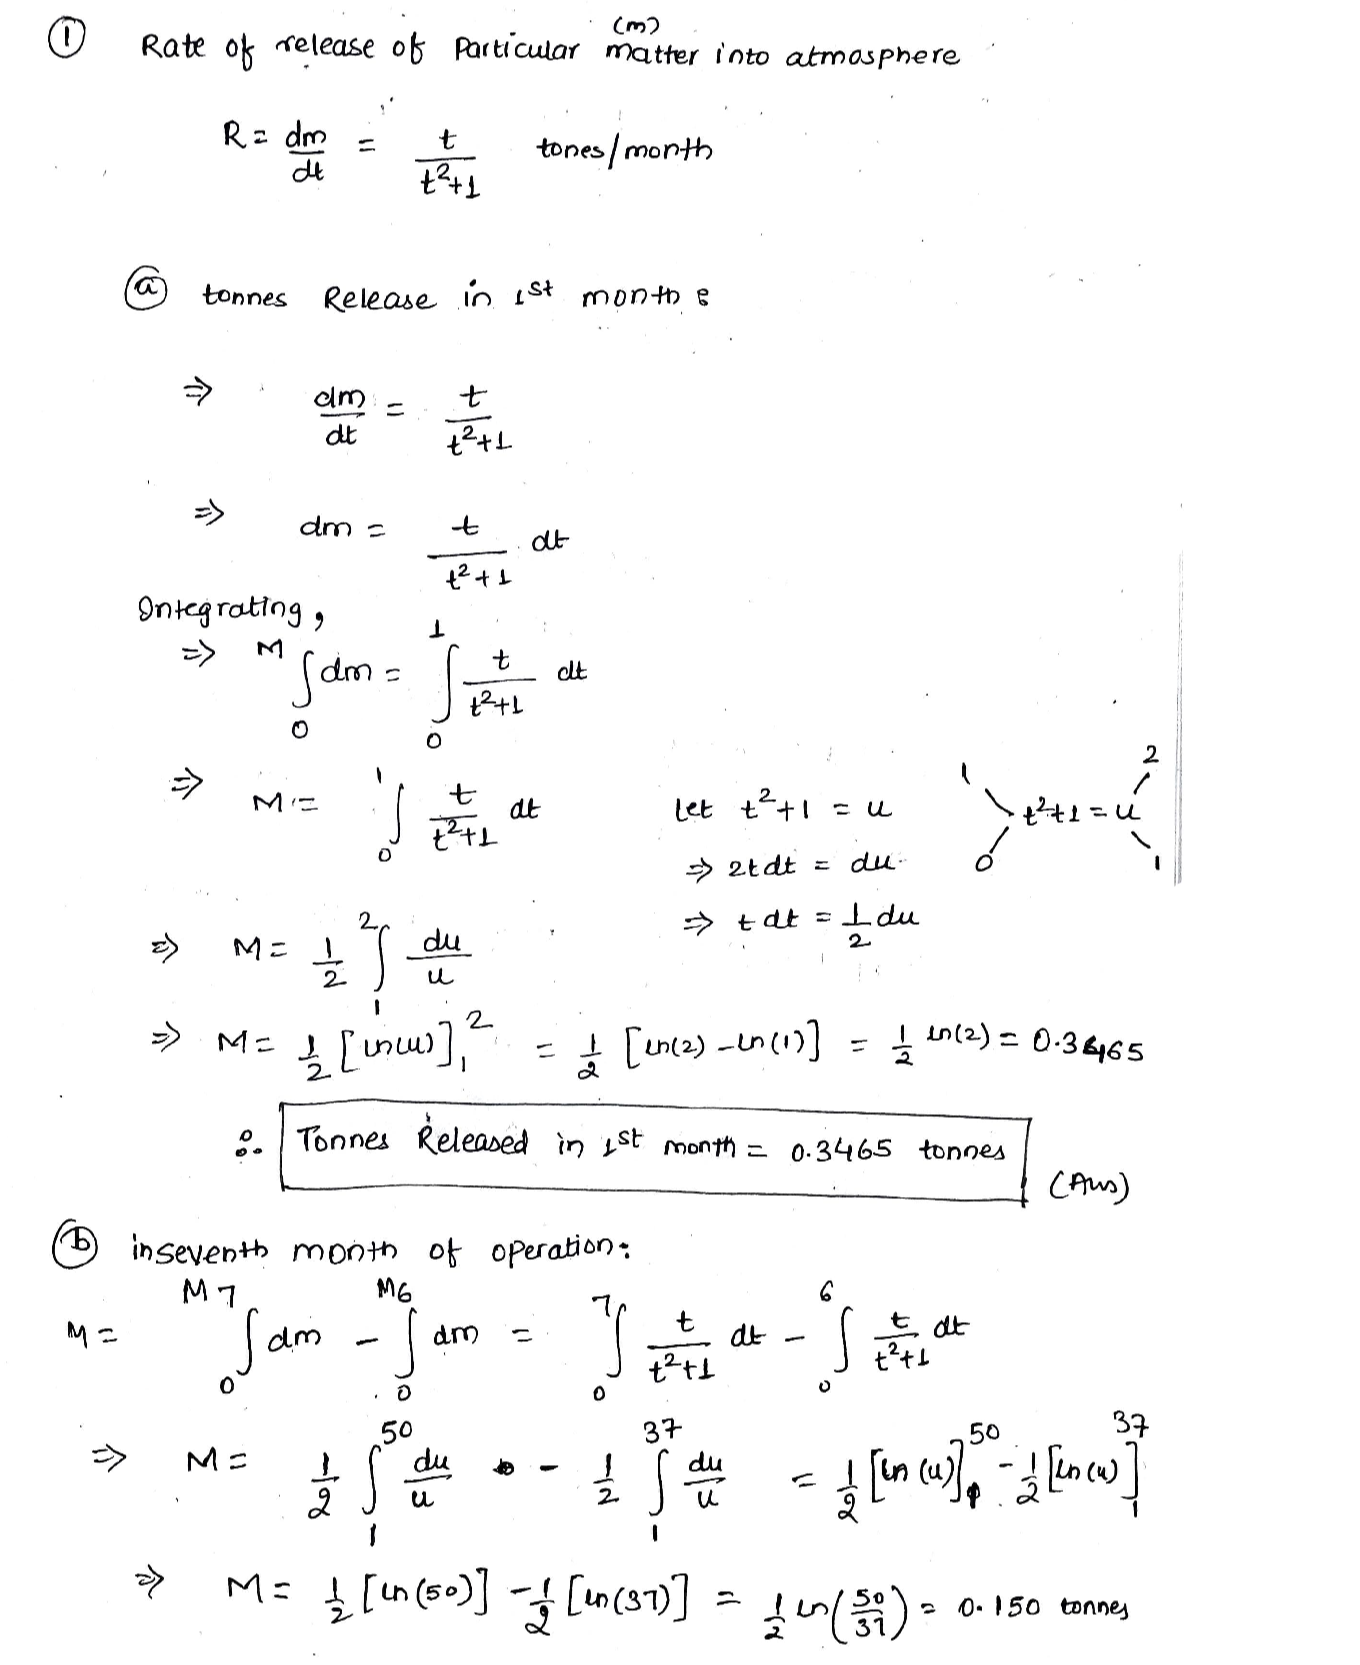 ① Rate of release of Particular matter (m) into atmosphere
R = dm/dt = t/(t²+1) tones/month
ⓐ tonnes Release in 1st month :
⇒ dm/dt = t/(t²+1)
⇒ dm = t/(t²+1) . dt
Integrating,
⇒ ∫₀ᴹ dm = ∫₀¹ t/(t²+1) dt
⇒ M = ∫₀¹ t/(t²+1) dt
Let t²+1 = u
1 0 t²+1 = u 2 1
⇒ 2t dt = du
⇒ t dt = 1/2 du
⇒ M = 1/2 ∫₁² du/u
⇒ M = 1/2 [ln(u)]₁² = 1/2 [ln(2) - ln(1)] = 1/2 ln(2) = 0.3465
∴ Tonnes Released in 1st month = 0.3465 tonnes (Ans)
ⓑ in seventh month of operation:
M = ∫₀ᴹ⁷ dm - ∫₀ᴹ⁶ dm = ∫₀⁷ t/(t²+1) dt - ∫₀⁶ t/(t²+1) dt
⇒ M = 1/2 ∫₁⁵⁰ du/u - 1/2 ∫₁³⁷ du/u = 1/2 [ln(u)]₁⁵⁰ - 1/2 [ln(u)]₁³⁷
⇒ M = 1/2 [ln(50)] - 1/2 [ln(37)] = 1/2 ln(50/37) = 0.150 tonnes